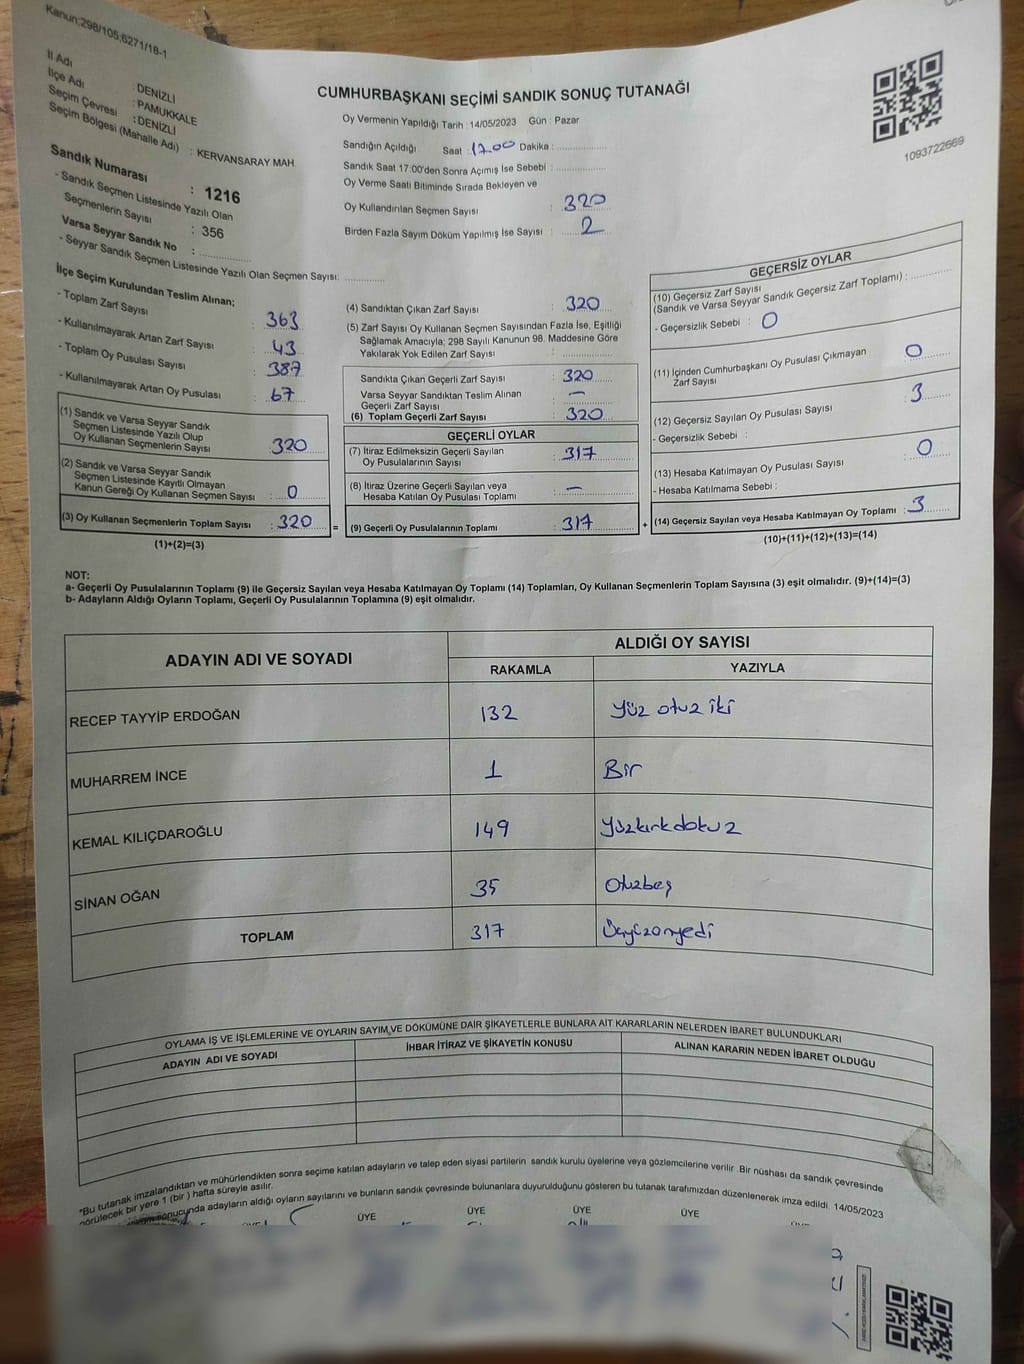 Kanun:298/105,6271/18-1
İl Adı : DENİZLİ
İlçe Adı : PAMUKKALE
Seçim Çevresi : DENİZLİ
Seçim Bölgesi (Mahalle Adı) : KERVANSARAY MAH.
Sandık Numarası : 1216
- Sandık Seçmen Listesinde Yazılı Olan
Seçmenlerin Sayısı : 356
Varsa Seyyar Sandık No :
- Seyyar Sandık Seçmen Listesinde Yazılı Olan Seçmen Sayısı:
CUMHURBAŞKANI SEÇİMİ SANDIK SONUÇ TUTANAĞI
Oy Vermenin Yapıldığı Tarih : 14/05/2023 Gün : Pazar
Sandığın Açıldığı Saat : 17.00 Dakika :
Sandık Saat 17:00'den Sonra Açımış İse Sebebi :
Oy Verme Saati Bitiminde Sırada Bekleyen ve
Oy Kullandırılan Seçmen Sayısı : 320
Birden Fazla Sayım Döküm Yapılmış İse Sayısı : 2
1093722669
İlçe Seçim Kurulundan Teslim Alınan;
- Toplam Zarf Sayısı : 363
- Kullanılmayarak Artan Zarf Sayısı : 43
- Toplam Oy Pusulası Sayısı : 387
- Kullanılmayarak Artan Oy Pusulası : 67
(1) Sandık ve Varsa Seyyar Sandık
Seçmen Listesinde Yazılı Olup
Oy Kullanan Seçmenlerin Sayısı : 320
(2) Sandık ve Varsa Seyyar Sandık
Seçmen Listesinde Kayıtlı Olmayan
Kanun Gereği Oy Kullanan Seçmen Sayısı : 0
(3) Oy Kullanan Seçmenlerin Toplam Sayısı : 320
(1)+(2)=(3)
=
(4) Sandıktan Çıkan Zarf Sayısı : 320
(5) Zarf Sayısı Oy Kullanan Seçmen Sayısından Fazla İse, Eşitliği
Sağlamak Amacıyla; 298 Sayılı Kanunun 98. Maddesine Göre
Yakılarak Yok Edilen Zarf Sayısı :
Sandıkta Çıkan Geçerli Zarf Sayısı : 320
Varsa Seyyar Sandıktan Teslim Alınan
Geçerli Zarf Sayısı : –
(6) Toplam Geçerli Zarf Sayısı : 320
GEÇERLİ OYLAR
(7) İtiraz Edilmeksizin Geçerli Sayılan
Oy Pusulalarının Sayısı : 317
(8) İtiraz Üzerine Geçerli Sayılan veya
Hesaba Katılan Oy Pusulası Toplamı : –
(9) Geçerli Oy Pusulalarının Toplamı : 317
+
GEÇERSİZ OYLAR
(10) Geçersiz Zarf Sayısı
(Sandık ve Varsa Seyyar Sandık Geçersiz Zarf Toplamı) :
- Geçersizlik Sebebi : 0
(11) İçinden Cumhurbaşkanı Oy Pusulası Çıkmayan
Zarf Sayısı 0
(12) Geçersiz Sayılan Oy Pusulası Sayısı 3
- Geçersizlik Sebebi :
(13) Hesaba Katılmayan Oy Pusulası Sayısı 0
- Hesaba Katılmama Sebebi :
(14) Geçersiz Sayılan veya Hesaba Katılmayan Oy Toplamı : 3
(10)+(11)+(12)+(13)=(14)
NOT:
a- Geçerli Oy Pusulalarının Toplamı (9) ile Geçersiz Sayılan veya Hesaba Katılmayan Oy Toplamı (14) Toplamları, Oy Kullanan Seçmenlerin Toplam Sayısına (3) eşit olmalıdır. (9)+(14)=(3)
b- Adayların Aldığı Oyların Toplamı, Geçerli Oy Pusulalarının Toplamına (9) eşit olmalıdır.
ADAYIN ADI VE SOYADI
ALDIĞI OY SAYISI
RAKAMLA YAZIYLA
RECEP TAYYİP ERDOĞAN 132 Yüz otuz iki
MUHARREM İNCE 1 Bir
KEMAL KILIÇDAROĞLU 149 Yüzkırkdokuz
SİNAN OĞAN 35 Otuzbeş
TOPLAM 317 Üçyüzonyedi
OYLAMA İŞ VE İŞLEMLERİNE VE OYLARIN SAYIM VE DÖKÜMÜNE DAİR ŞİKAYETLERLE BUNLARA AİT KARARLARIN NELERDEN İBARET BULUNDUKLARI
ADAYIN ADI VE SOYADI İHBAR İTİRAZ VE ŞİKAYETİN KONUSU ALINAN KARARIN NEDEN İBARET OLDUĞU
*Bu tutanak imzalandıktan ve mühürlendikten sonra seçime katılan adayların ve talep eden siyasi partilerin sandık kurulu üyelerine veya gözlemcilerine verilir .Bir nüshası da sandık çevresinde
görülecek bir yere 1 (bir ) hafta süreyle asılır.
sonucunda adayların aldığı oyların sayılarını ve bunların sandık çevresinde bulunanlara duyurulduğunu gösteren bu tutanak tarafımızdan düzenlenerek imza edildi. 14/05/2023
ÜYE ÜYE ÜYE ÜYE